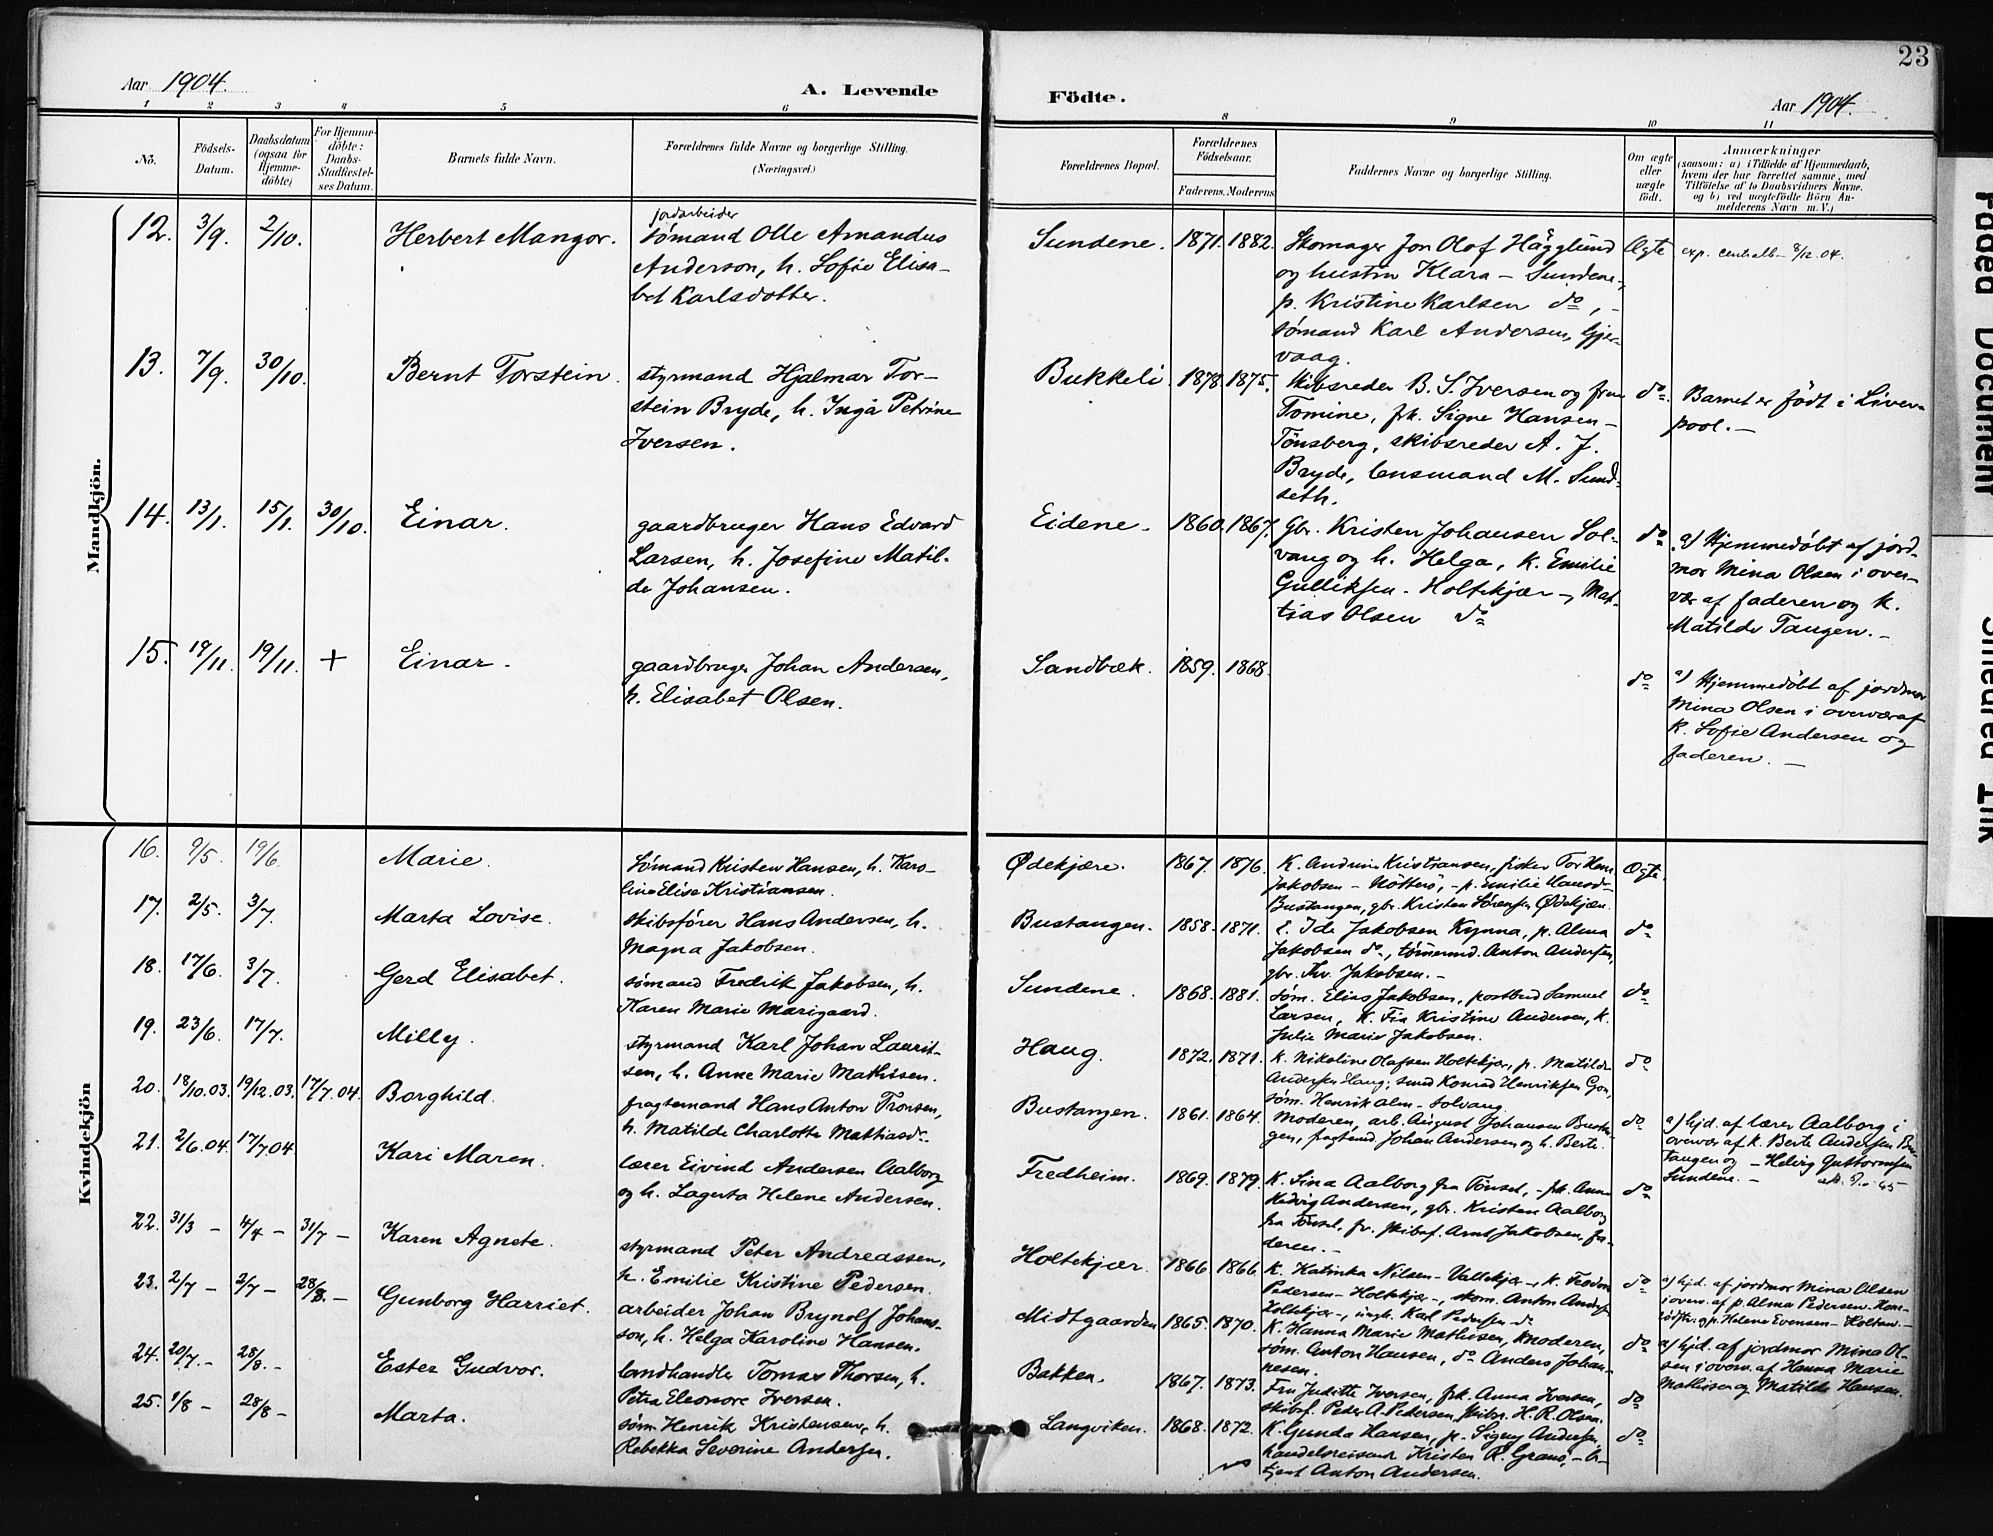 23
Aar 1904.
A. Levende Födte.
Aar 1904.
1 2 3 4 5 6 8 9 10 11
No.
Födsels-Datum.
Daabsdatum (ogsaa for Hjemme-döbte)
For Hjemme-döbte: Daabs-Stadfæstel-ses Datum.
Barnets fulde Navn.
Forældrenes fulde Navne og borgerlige Stilling. (Næringsvei.)
Forældrenes Bopæl.
Forældrenes Födselsaar.
Faderens. Moderens.
Faddernes Navne og borgerlige Stilling.
Om ægte eller uægte födt.
Anmærkninger
(saasom: a) i Tilfælde af Hjemmedaab, hvem der har forrettet samme, med Tilföielse af to Daabsvidners Navne. og b) ved uægtefödte Börn An-melderens Navn m. V.)
Mandkjön.
12. 3/9. 2/10. Herbert Mangor.
jordarbeider
sømand Olle Amandus
Anderson, h. Sofie Elisa-
bet Karlsdotter.
Sundene. 1871. 1882.
Skomager Jon Olof Hägglund
og hustru Klara - Sundene,
p. Kristine Karlsen do, -
sømand Karl Andersen, Gjer-
vaag.
Ægte
exp. centralb- 8/12.04.
13. 7/9. 30/10. Bernt Torstein.
styrmand Hjalmar Tor-
stein Bryde, h. Inga Petrine
Iversen.
Bukkeli. 1878. 1875.
skibsreder B. S. Iversen og frue
Tomine, frk. Signe Hansen -
Tönsberg, skibsreder A. J.
Bryde, lensmand M. Sund-
seth.
do.
Barnet er födt i Liver-
pool. -
14. 13/1. 15/1. 30/10. Einar.
gaardbruger Hans Edvard
Larsen, h. Josefine Matil-
de Johansen.
Eidene - 1860. 1867.
Gbr. Kristen Johansen Sol-
vang og h. Helga, K. Emilie
Gulliksen - Holtekjær -, Mat-
tias Olsen do
do
a) Hjemmedøbt af jord-
mor Mina Olsen i over-
vær af faderen og K.
Matilde Tangen. -
15. 19/11. 19/11. + Einar.
gaardbruger Johan Andersen,
h. Elisabet Olsen.
Sandbæk. 1859. 1868.
do
a) Hjemmedøbt af jordmor
Mina Olsen i overvær af
K. Sofie Andersen og
faderen. -
Kvindekjön
16. 9/5. 19/6. Marie.
Sømand Kristen Hansen, h. Karo-
line Elise Kristiansen.
Ødekjære. 1867. 1876.
K. Andrine Kristiansen, fisker Tor Hans
Jakobsen - Nötterö, - p. Emilie
Bustangen, gbr. Kristen Sörensen Ödekjær.
Ægte.
17. 2/5. 3/7. Marta Lovise.
skibsfører Hans Andersen, h.
Magna Jakobsen.
Bustangen. 1858. 1871.
Ida Jakobsen Kynna, p. Alma
Jakobsen do, tømmermd. Anton Andersen,
gbr. Jakobsen. -
do
18. 17/6. 3/7. Gerd Elisabet.
sømand Fredrik Jakobsen, h.
Karen Marie Marigaard.
Sundene. 1868. 1881.
Søm. Elias Jakobsen, postbud Samuel
Larsen, K. Fia Kristine Andersen, K.
Julie Marie Jakobsen.
do
19. 23/6. 17/7. Milly.
styrmand Karl Johan Laurit-
sen, h. Anne Marie Mathissen.
Haug. 1872. 1871.
K. Nikoline Olafsen Holtekjær, p. Matilde
Andersen Haug; smed Konrad Henriksen
søm. Henrik Alm - Solvang
do
20. 18/10.03. 19/12.03. 17/7.04. Borghild.
fragtemand Hans Anton Tronsen,
h. Matilde Charlotte Mathiasdr.
Bustangen. 1861. 1864.
Moderen, arb. August Johansen Bustan-
gen, fragtmd. Johan Andersen og h. Berte.
do
a) hjd. af lærer Aalborg i
overvær af K. Berte Andersen Bu-
tangen og - Helvig Guttormsen
Sundene. -
21. 2/6.04. 17/7.04. Kari Maren.
lærer Eivind Andersen Aalborg
og h. Lagerta Helene Andersen.
Fredheim. 1869. 1879.
K. Sina Aalborg fra Tönset, - frk. Anna
Hedvig Andersen, gbr. Kristen Aalborg
fra Tönset, fv. skibsf. Arnt Jakobsen, fa-
deren. -
do
22. 31/3 - 4/4 - 31/7 - Karen Agnete.
styrmand Peter Andreassen,
h. Emilie Kristine Pedersen.
Holtekjær. 1866. 1866.
K. Katinka Nilsen - Vallekjær -, K. Teodor
Pedersen - Holtekjær -, skom. Anton Anders
Holtekjær -, ungk. Karl Pedersen do
do
a) hjd. af jordmor Mina Olsen
i overv. af p. Alma Pedersen
og p. Helene Evensen - Holtan. -
23. 2/7 - 2/7 - 28/8. - Gunborg Harriet.
arbeider Johan Brynolf Johans-
son, h. Helga Karoline Hansen.
Midtgaarden 1865. 1870.
K. Hanna Marie Mathisen, moderen,
søm. Anton Hansen, do Anders Johan-
nesen.
do
a) hjd. af jordmor Mina Ol-
sen i overv. af Hanna Marie
Mathisen og Matilde Hansen.
24. 20/7. - 28/8. - Ester Gudvor.
landhandler Tomas Thorsen, h.
Petra Eleonore Iversen.
Bakken. 1867. 1873.
Fru Juditte Iversen, frk. Anna Iversen,
skibsf. Peder A. Pedersen, skibsr. H. R. Olsen.
do
25. 1/8 - 28/8 - Marta.
søm. Henrik Kristensen, h.
Rebekka Severine Andersen.
Langviken. 1868. 1872.
K. Gunda Hansen, p. Signy Andersen,
handelsreisende Kristen R. Granö, -
Anton Andersen.
do
Faded Document
Smeared Ink